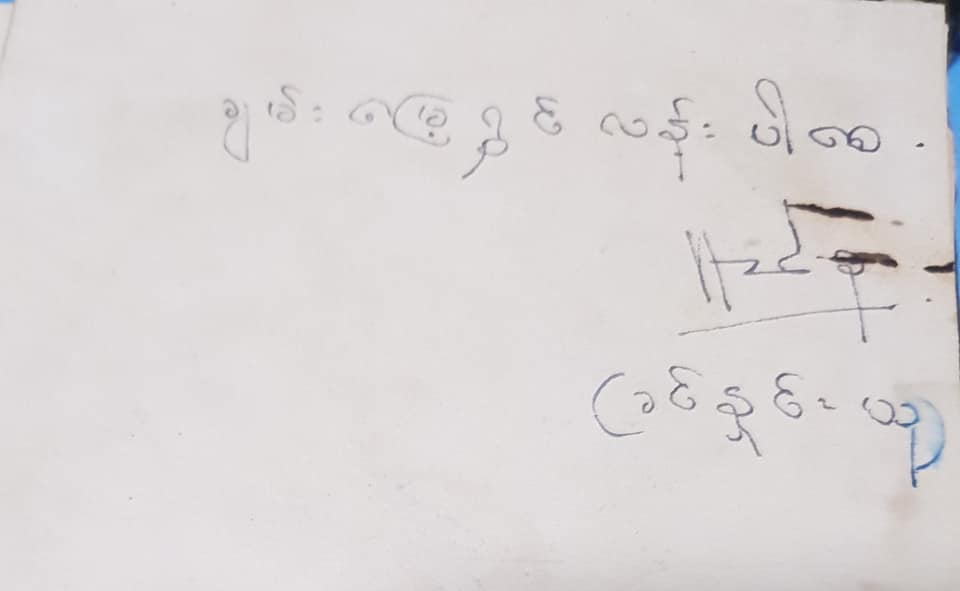 ချမ်းမြေ့ရွှင်လန်းပါစေ.
(ခင်နှင်းယု)